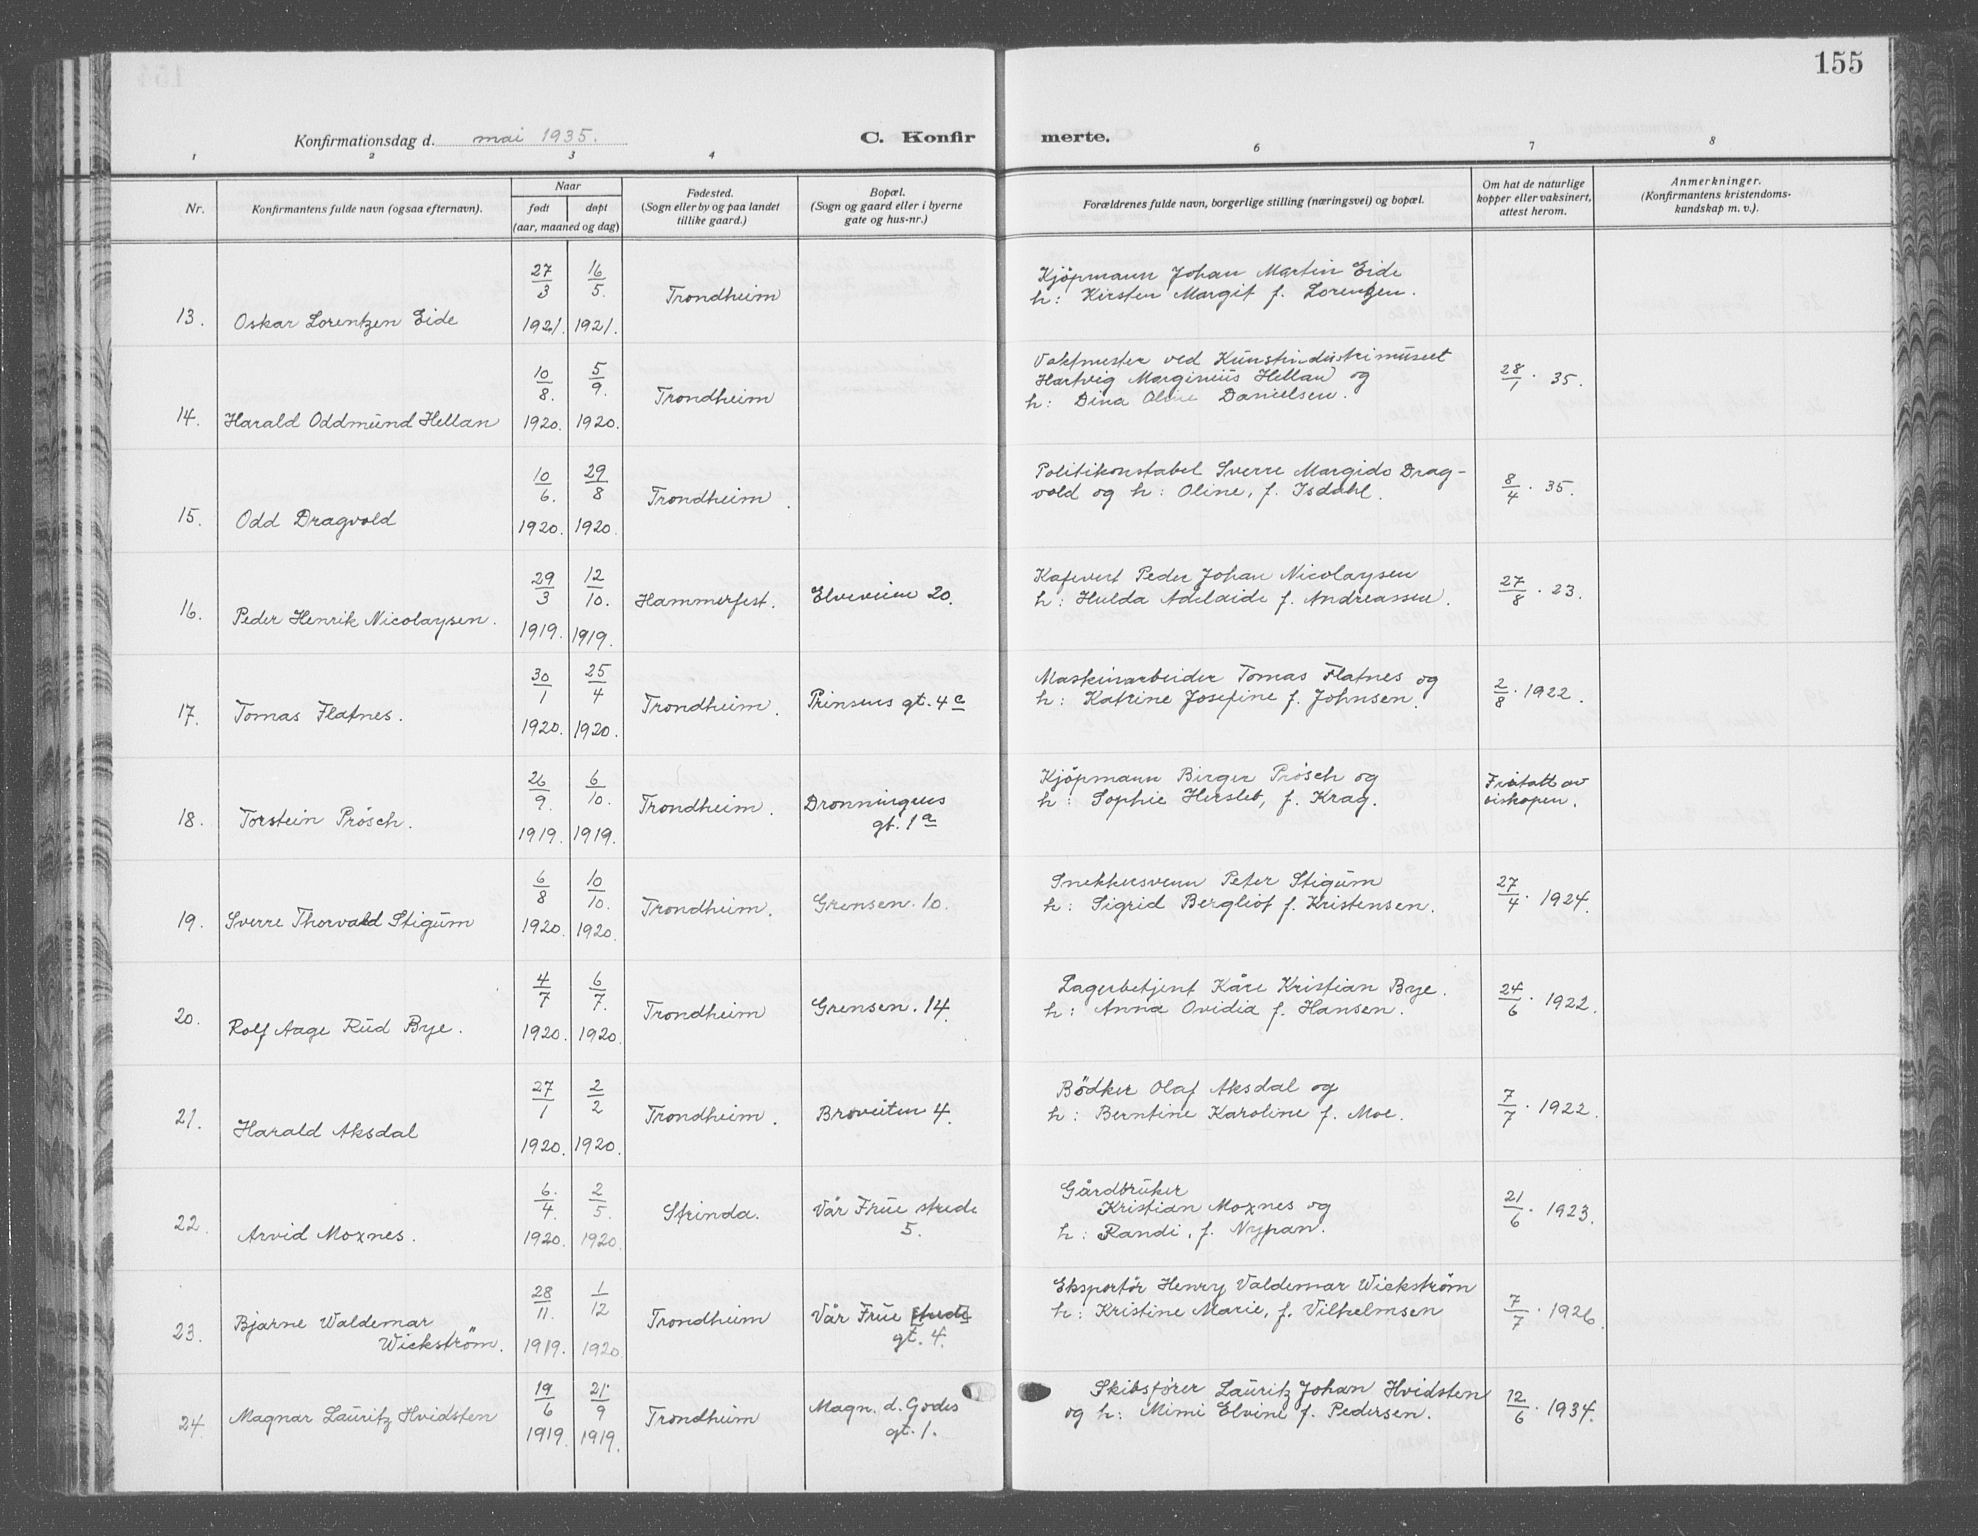 155
Konfirmationsdag d. mai 1935.
C. Konfir merte.
1 2 3 4 6 7 8
Nr.
Konfirmantens fulde navn (ogsaa efternavn).
Naar
født døpt
(aar, maaned og dag)
Fødested.
(Sogn eller by og paa landet
tillike gaard.)
Bopæl.
(Sogn og gaard eller i byerne
gate og hus-nr.)
Forældrenes fulde navn, borgerlige stilling (næringsvei) og bopæl.
Om hat de naturlige
kopper eller vaksinert,
attest herom.
Anmerkninger.
(Konfirmantens kristendoms-
kundskap m. v.).
13. Oskar Lorentzen Eide
27/3 1921. 16/5. 1921.
Trondheim
Kjöpmann Johan Martin Eide
h: Kirsten Margit f. Lorentzen.
14. Harald Oddmund Hellan
10/8. 1920. 5/9. 1920.
Trondheim
Vaktmester ved Kunstindustrimuseet
Hartvig Marginius Hellan og
h: Dina Oline Danielsen.
28/1. 35.
15. Odd Dragvold
10/6. 1920. 29/8 1920.
Trondheim.
Politikonstabel Sverre Margido Drag-
vold og h: Oline, f. Isdahl.
8/4. 35.
16. Peder Henrik Nicolaysen.
29/3 1919. 12/10. 1919.
Hammerfest.
Elveveien 20.
Kafevert Peder Johan Nicolaysen
h: Hulda Adelaide f. Andreassen.
27/8. 23.
17. Tomas Flatnes.
30/1 1920. 25/4 1920.
Trondheim.
Prinsens gt. 4c
Maskinarbeider Tomas Flatnes og
h: Katrine Josefine f. Johnsen.
2/8. 1922.
18. Torstein Prösch.
26/9. 1919. 6/10. 1919.
Trondheim.
Dronningens
gt. 1a
Kjöpmann Birger Prösch og
h: Sophie Hersleb, f. Krag.
Fritatt av
biskopen.
19. Sverre Thorvald Stigum
6/8 1920. 10/10. 1920.
Trondheim.
Grensen. 10.
Snekkersvenn Peter Stigum
h: Sigrid Bergliot f. Kristensen.
27/4. 1924.
20. Rolf Aage Rud Bye.
4/7 1920. 6/7. 1920.
Trondheim
Grensen. 14.
Lagerbetjent Kåre Kristian Bye.
h: Anna Ovidia f. Hansen.
24/6. 1922.
21. Harald Aksdal
27/1 1920. 2/2 1920.
Trondheim.
Broveiten 4.
Bödker Olaf Aksdal og
h: Berntine Karoline f. Moe.
7/7. 1922.
22. Arvid Moxnes.
6./4. 1920. 2/5. 1920.
Strinda.
Vår Frue strede
5.
Gårdbruker
Kristian Moxnes og
h: Randi, f. Nypan.
21/6. 1923.
23. Bjarne Waldemar
Wickström.
28/11. 1919. 1/12 1920.
Trondheim
Vår Frue strede
gt. 4.
Eksportör Henry Valdemar Wickström
h: Kristine Marie, f. Vilhelmsen
7/7. 1926.
24. Magnar Lauritz Hvidsten
19/6 1919. 21/9 1919.
Trondheim
Magn. d. Godes
gt. 1.
Skibsfører Lauritz Johan Hvidsten
og h: Mimi Elvine f. Pedersen.
12/6. 1934.